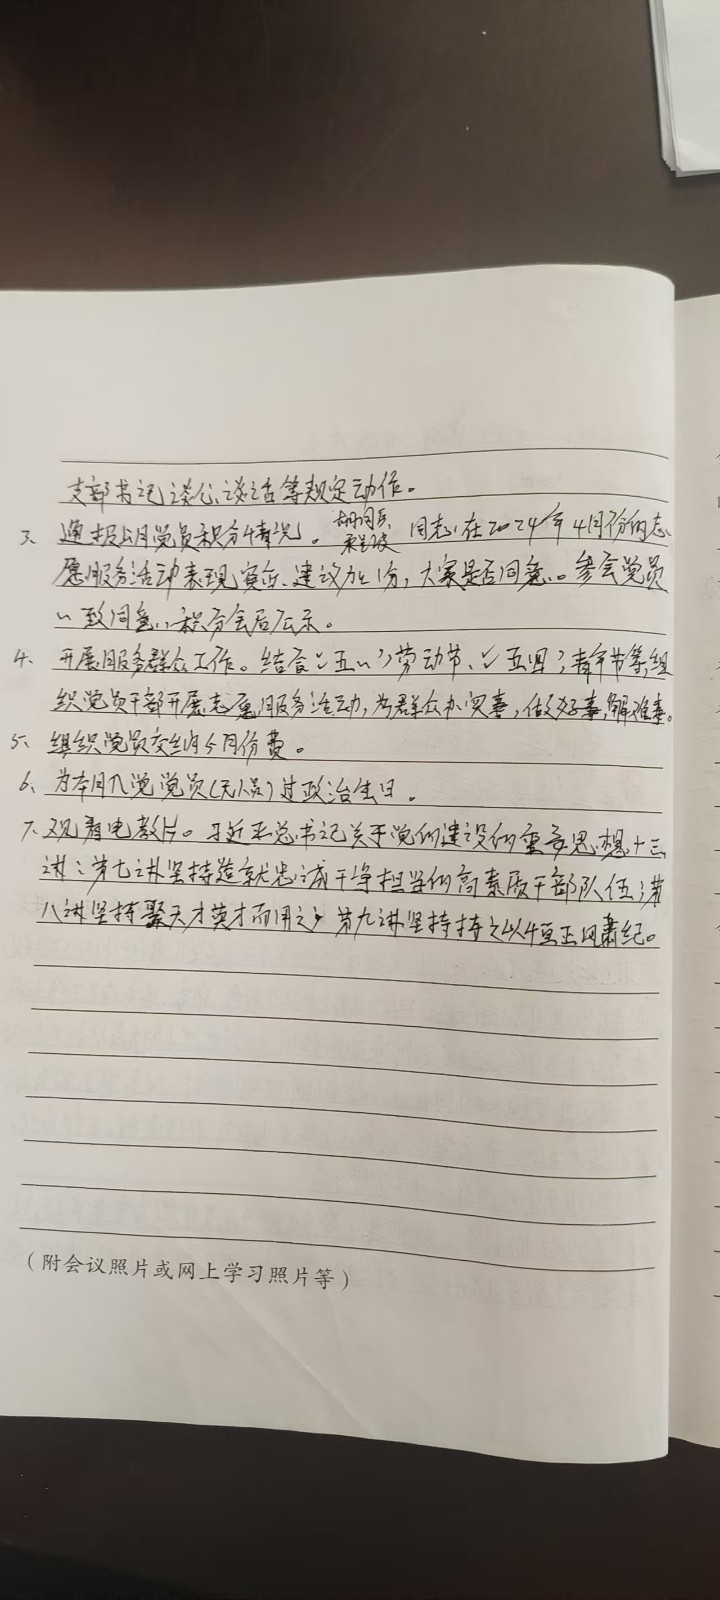 支部书记谈心谈话等规定动作。
3、通报上月党员积分情况。 同志,在2024年4月份的志
愿服务活动表现突出、建议加1分,大家是否同意。参会党员
一致同意,积分会后公示。
4、开展服务群众工作。结合"五一"劳动节、"五四"青年节等,组
织党员干部开展志愿服务活动,为群众办实事,做好事,解难事。
5、组织党员交纳5月份党费。
6、为本月入党党员(无人员)过政治生日。
7、观看电教片。习近平总书记关于党的建设的重要思想十三
讲:第七讲坚持造就忠诚干净担当的高素质干部队伍;第
八讲坚持聚天才英才而用之;第九讲坚持持之以恒正风肃纪。
(附会议照片或网上学习照片等)